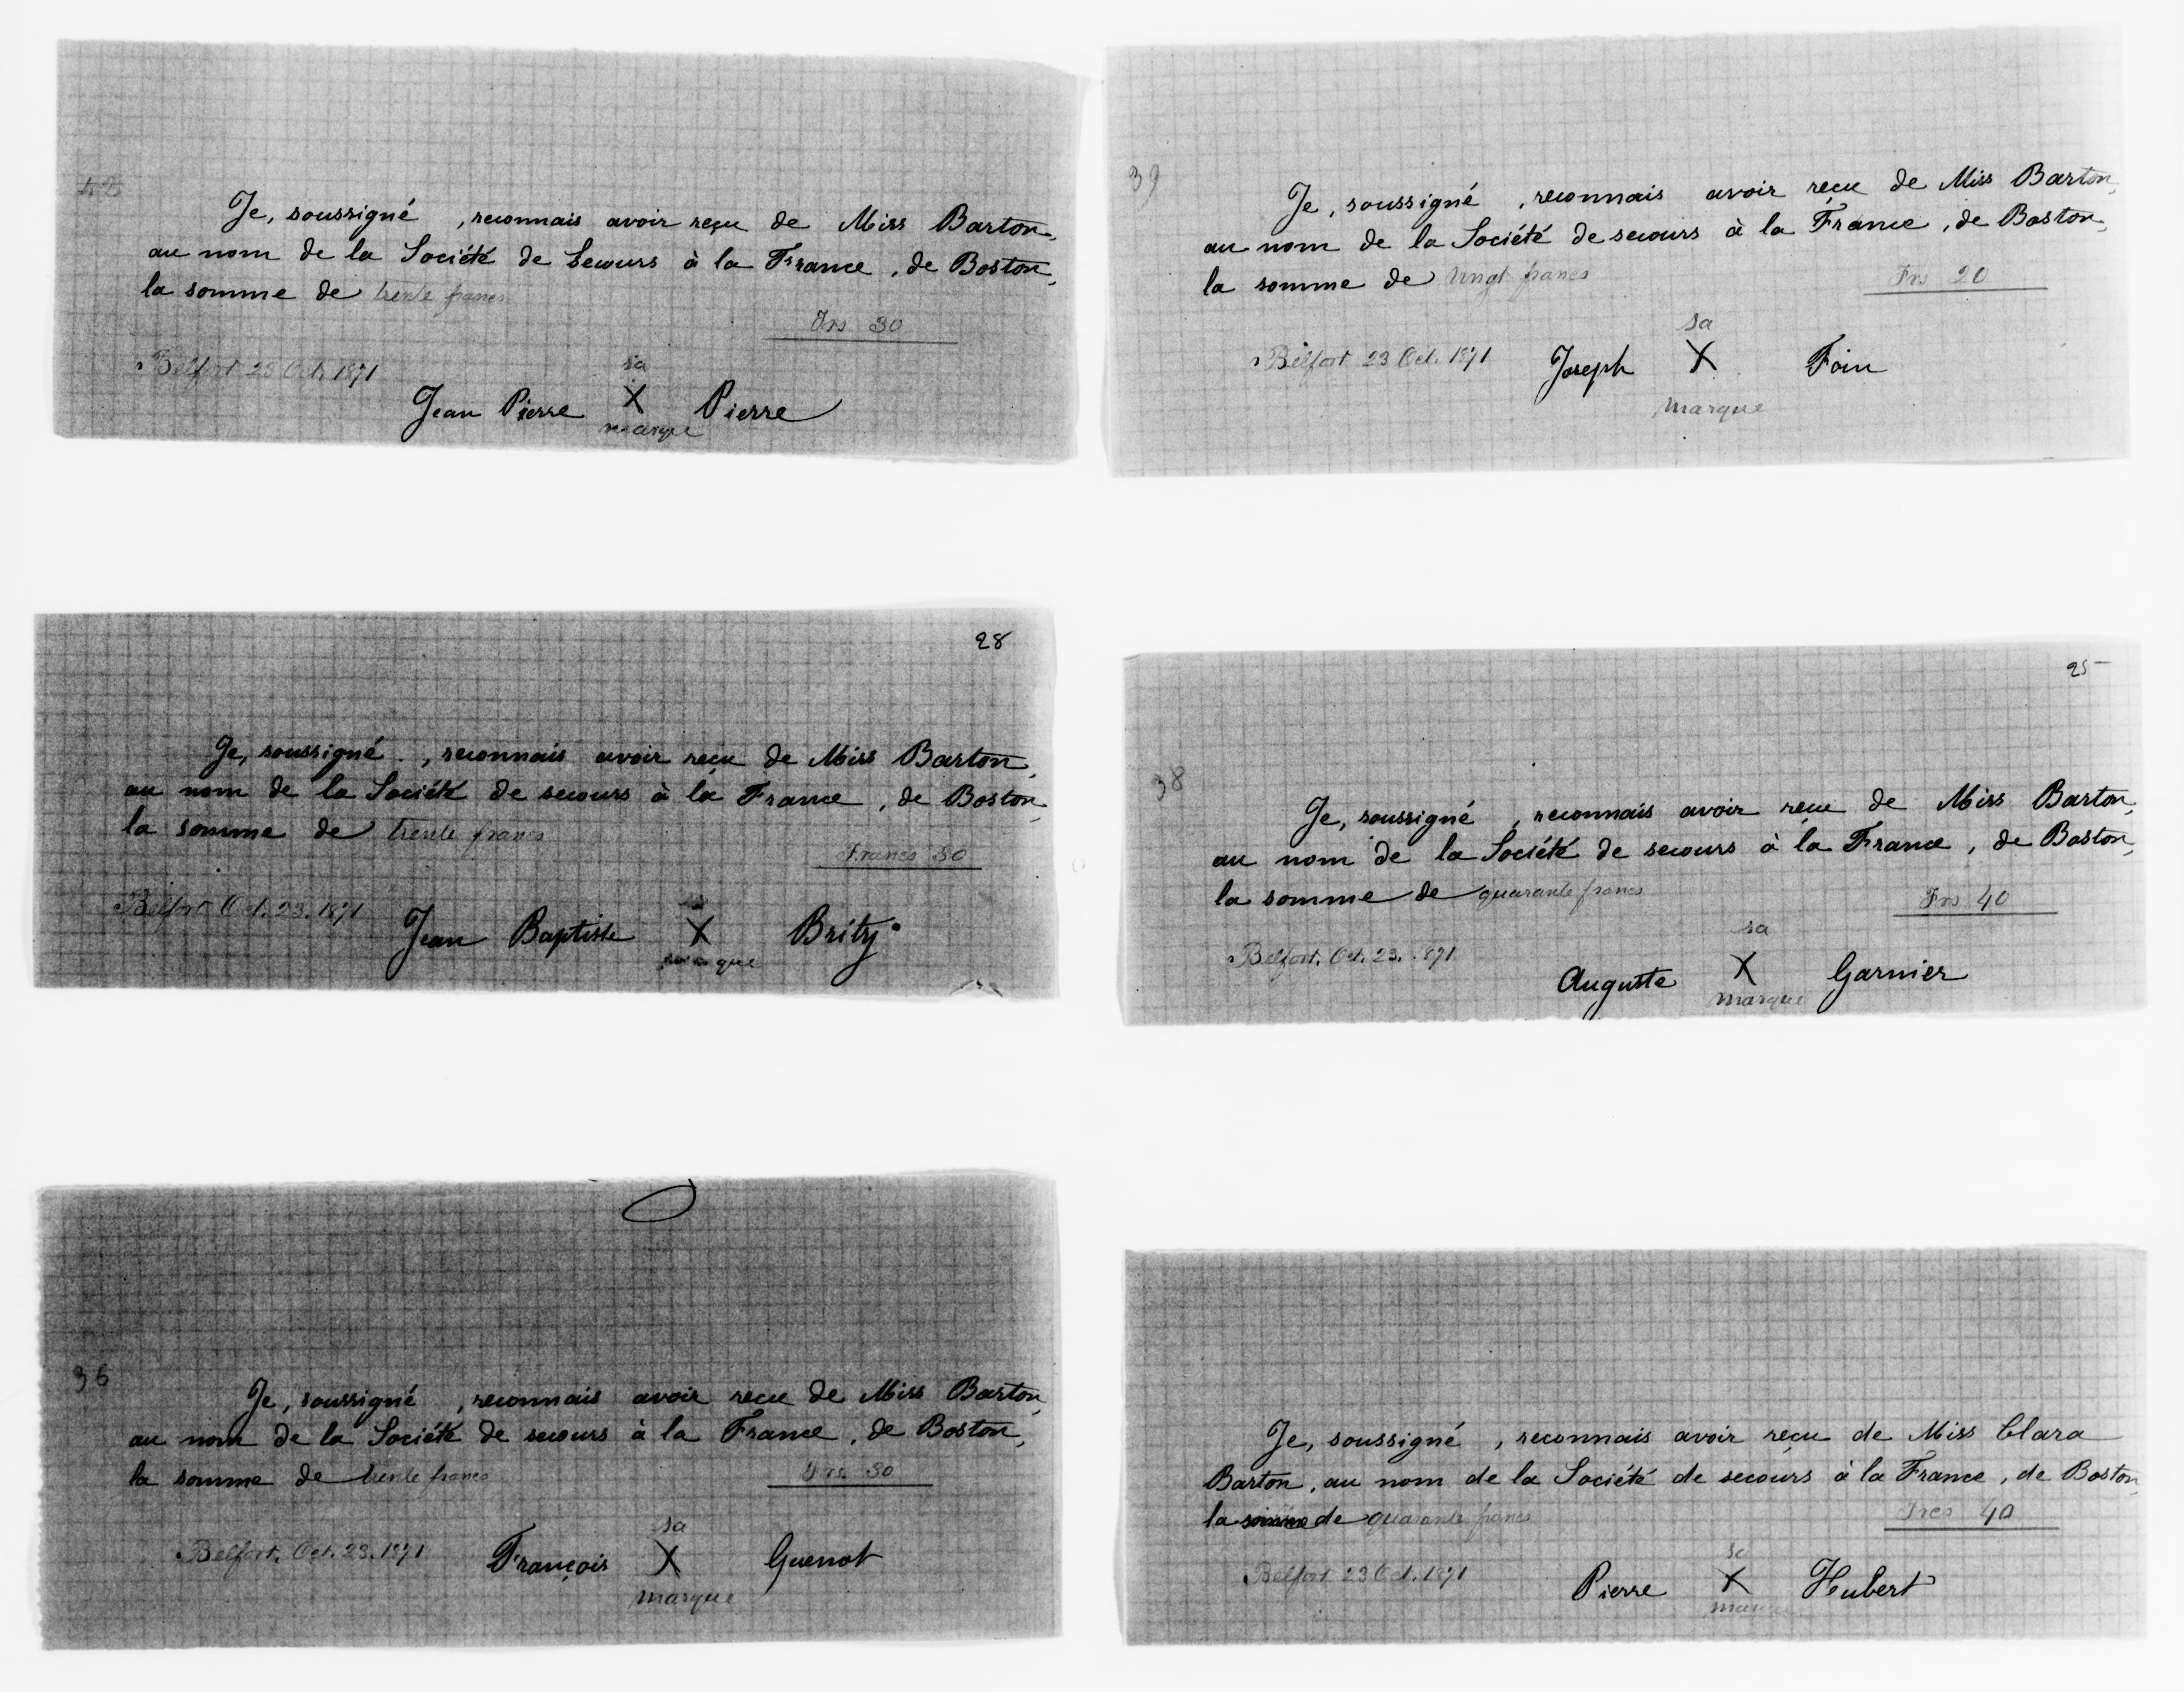 Je, soussigné , reconnais avoir reçu de Miss Barton,
au nom de la Société de Secours à la France, de Boston,
la somme de trente francs
Frs 30
Belfort 23 Oct. 1871
sa
Jean Pierre X Pierre
marque
39
Je, soussigné , reconnais avoir reçu de Miss Barton,
au nom de la Société de secours à la France, de Boston,
la somme de vingt francs
Frs 20
sa
Belfort 23 Oct. 1871 Joseph X Foin
marque
28
Je, soussigné , reconnais avoir reçu de Miss Barton,
au nom de la Société de secours à la France, de Boston,
la somme de trente francs
Francs 30
Belfort Oct. 23. 1871
Jean Baptiste X Brity
marque
25
38
Je, soussigné , reconnais avoir reçu de Miss Barton,
au nom de la Société de secours à la France, de Boston,
la somme de quarante francs
Frs 40
sa
Belfort. Oct. 23. 1871
Auguste X Garnier
marque
36
Je, soussigné , reconnais avoir reçu de Miss Barton,
au nom de la Société de secours à la France, de Boston,
la somme de trente francs
Frs. 30
sa
Belfort, Oct. 23. 1871 François X Guenot
marque
Je, soussigné , reconnais avoir reçu de Miss Clara
Barton, au nom de la Société de secours à la France, de Boston,
la somme de quarante francs
Frcs 40
sa
Belfort 23 Oct. 1871 Pierre X Hubert
marque